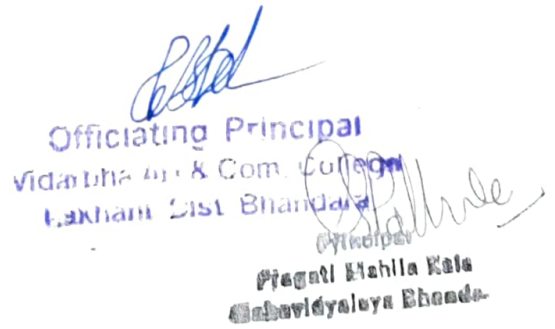 Officiating Principal
Vidarbha Art & Com. College
Lakhani Dist Bhandara
Principal
Pragati Mahila Kala
Mahavidyalaya Bhanda.